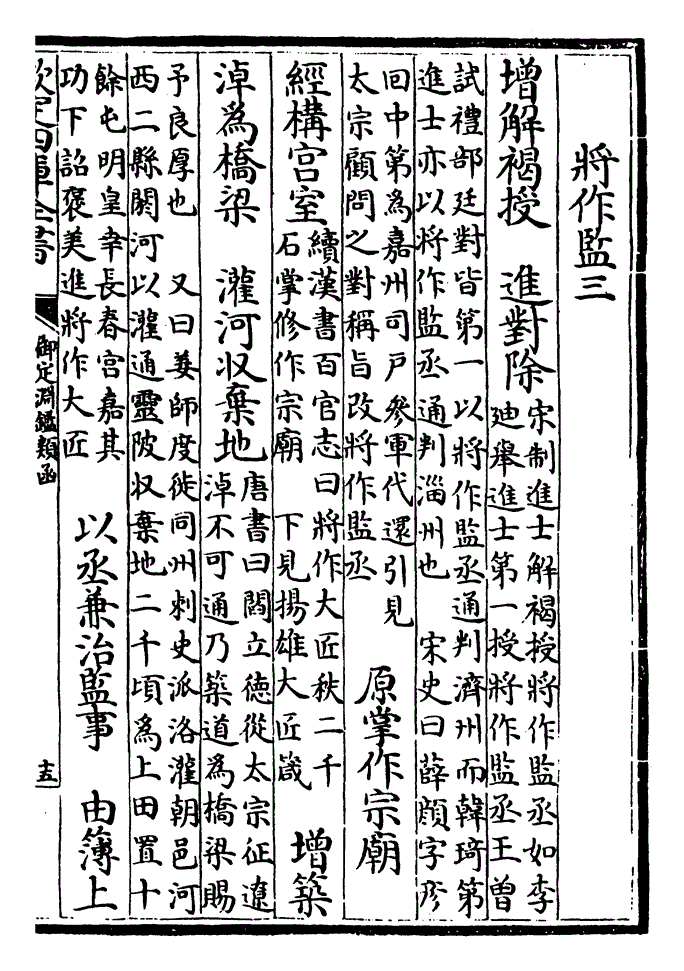 將作監三
增解褐授　進對除
宋制進士解褐授將作監丞如李
廸舉進士第一授將作監丞王曾
試禮部廷對皆第一以將作監丞通判濟州而韓琦第
進士亦以將作監丞通判淄州也　宋史曰薛顔字彥
回中第為嘉州司戶參軍代還引見
太宗顧問之對稱旨改將作監丞
原掌作宗廟
經構宫室
續漢書百官志曰將作大匠秩二千
石掌修作宗廟　下見揚雄大匠箴
增築
淖為橋梁　灌河収棄地
唐書曰閻立德從太宗征遼
淖不可通乃築道為橋梁賜
予良厚也　又曰姜師度徙同州刺史派洛灌朝邑河
西二縣閼河以灌通靈陂収棄地二千頃為上田置十
餘屯明皇幸長春宫嘉其
功下詔褒美進將作大匠
以丞兼治監事　由簿上
欽定四庫全書
御定淵鑑類函
十五